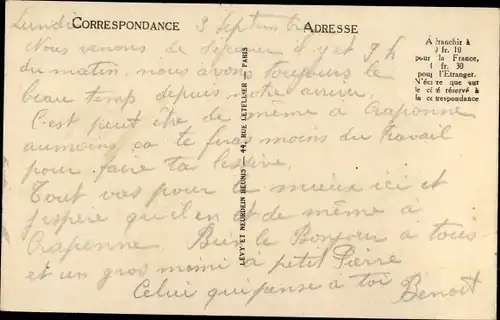 CORRESPONDANCE
ADRESSE
Lundi 3 Septembre
Nous venons de déjeuner il y et 9 h
du matin. nous avons toujours le
beau temps depuis notre arriver.
C'est peut être de même à Craponne
aumoins ça te feras moins du travail
pour faire ta lessive.
Tout vas pour le mieux ici et
j'espère qu'il en et de même à
Craponne. Bien le Bonjour à tous
et un gros mimi à petit Pierre
Celui qui pense a toi Benoit
Affranchir à
0 fr. 10
pour la France,
0 fr. 30
pour l'Etranger.
N'écrire que sur
le côté réservé à
la correspondance
LÉVY ET NEURDEIN RÉUNIS — 44, RUE LETELLIER — PARIS